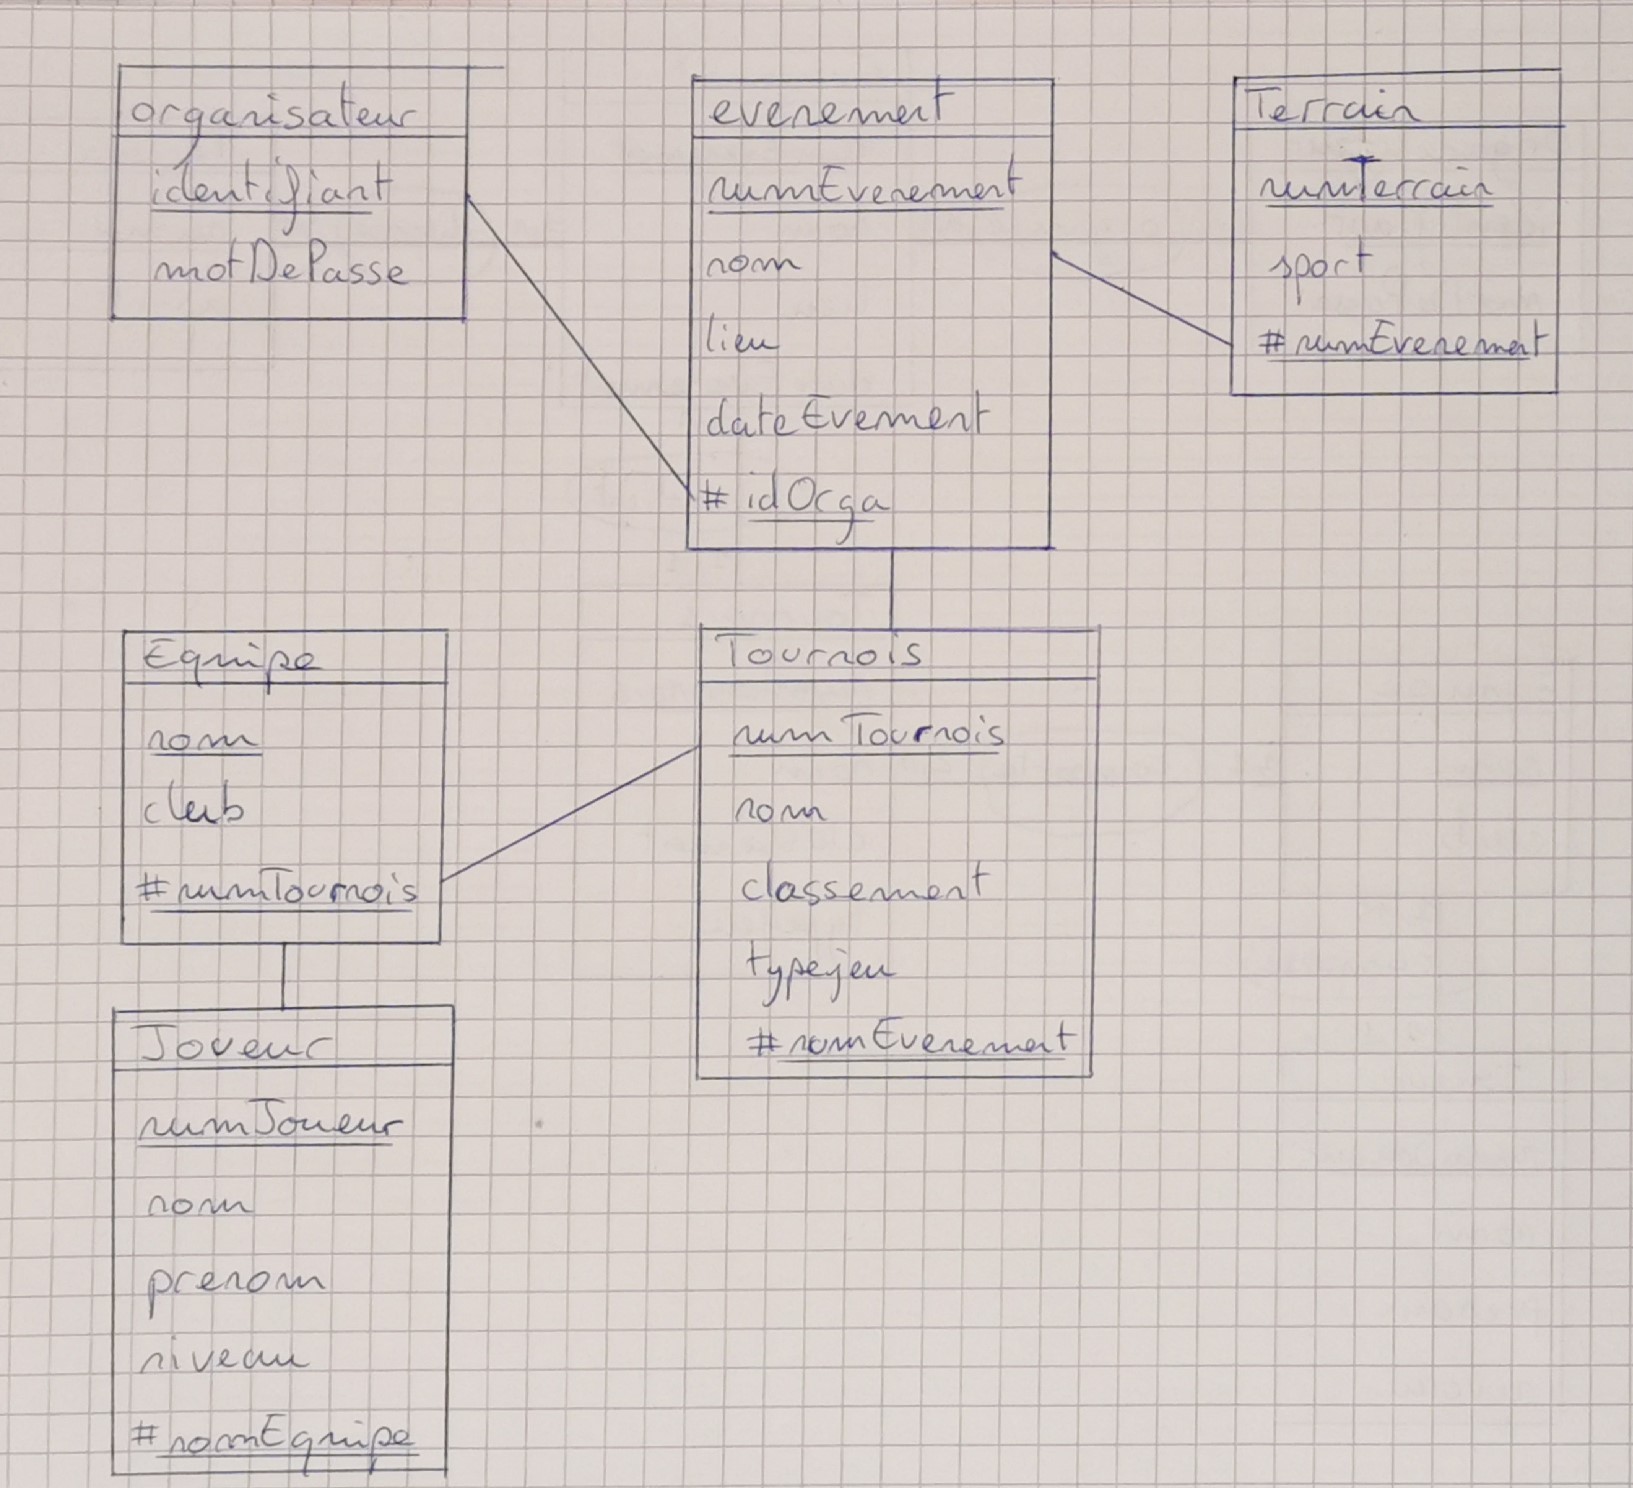 organisateur
identifiant
motDePasse
evenement
numEvenement
nom
lieu
dateEvement
# idOrga
Terrain
numTerrain
sport
# numEvenement
Equipe
nom
club
# numTournois
Tournois
numTournois
nom
classement
typejeu
# nomEvenement
Joueur
numJoueur
nom
prenom
niveau
# nomEquipe